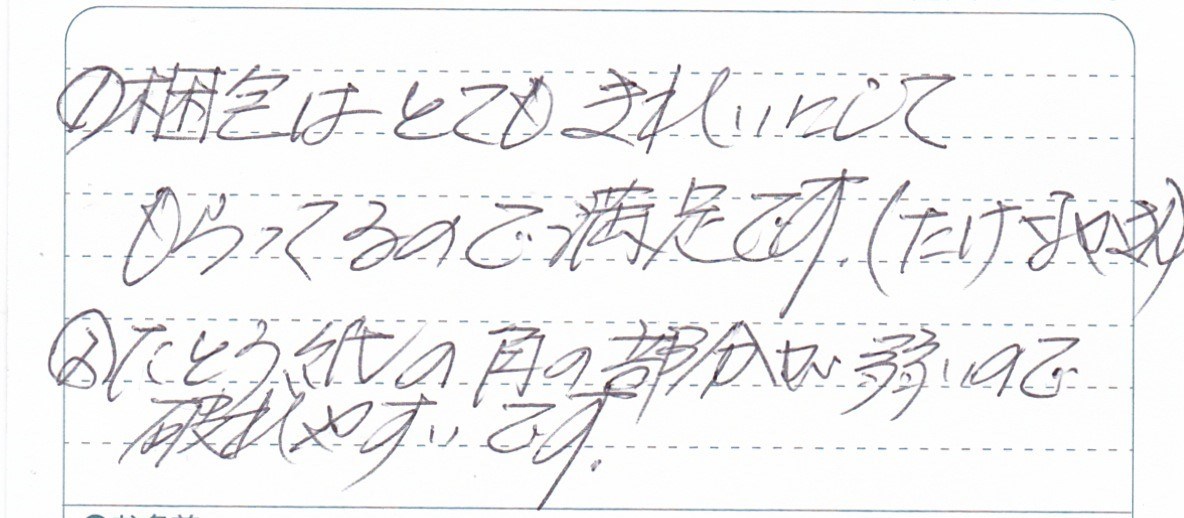 ①梱包はとてもきれいにして
もらってるので満足です。(たけ
②たとう紙の角の部分が弱いので
破れやすいです。